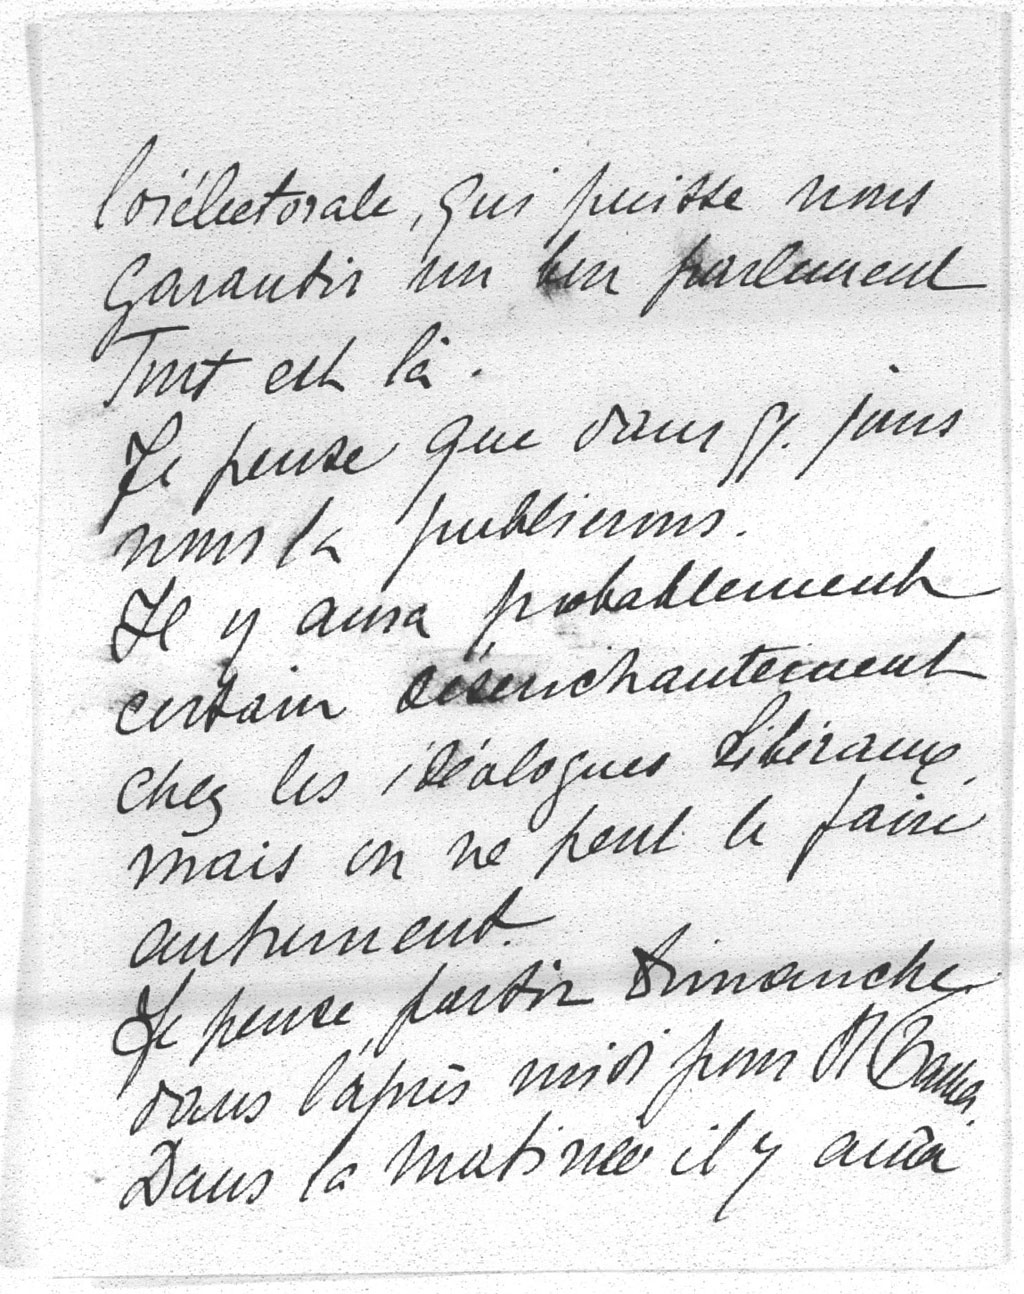 loi électorale, qui puisse nous
garantir un bon parlement
Tout est là.
Je pense que dans qq. jours
nous la publierons.
Il y aura probablement
certain désenchantement
chez les idéologues libéraux,
mais on ne peut le faire
autrement.
Je pense partir Dimanche
dans l'après midi pour
Dans la matinée il y aura